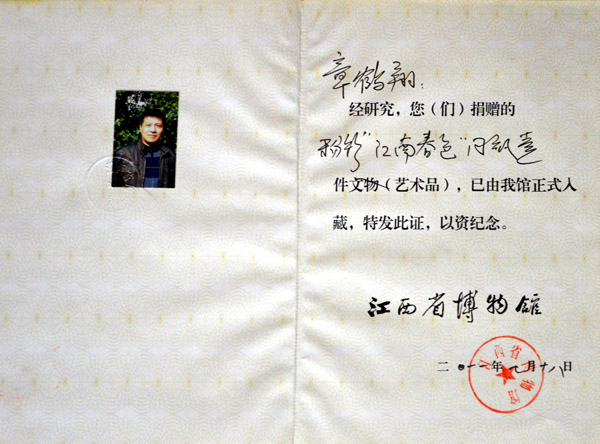 章鹤翔：
经研究，您（们）捐赠的
粉彩“江南春色”
件文物（艺术品），已由我馆正式入
藏，特发此证，以资纪念。
江西省博物馆
二〇一一年九月十八日
江西省博物馆